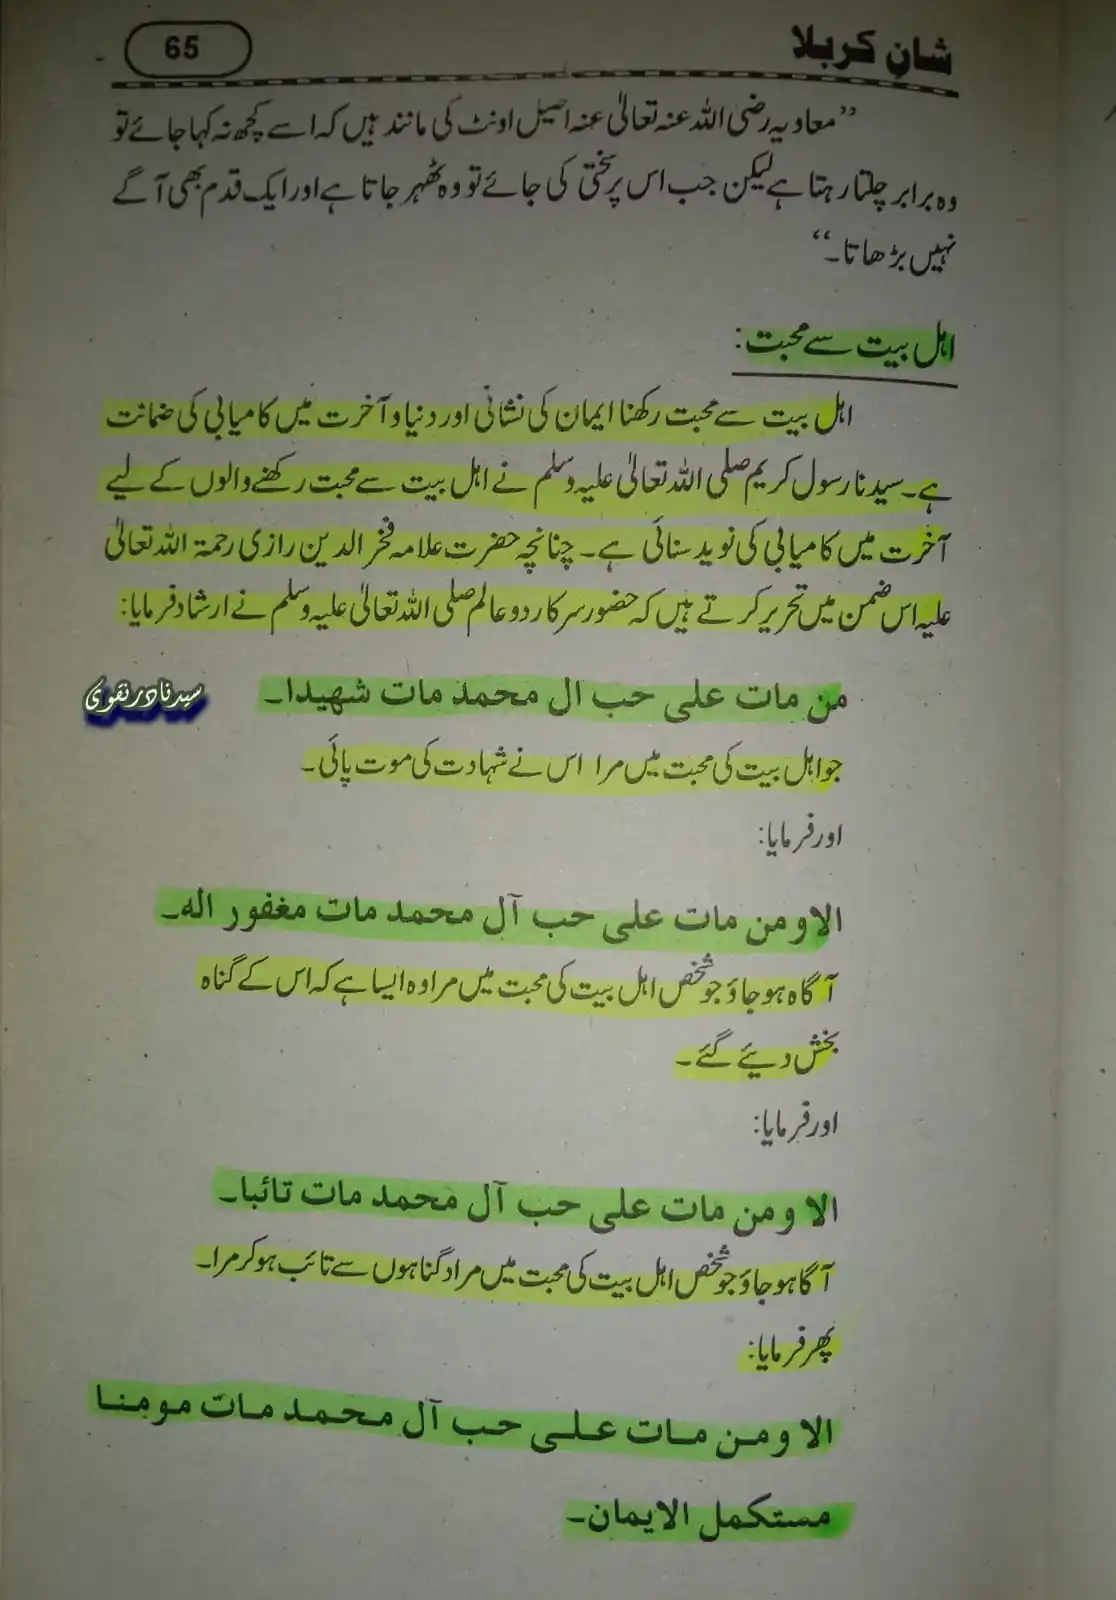 شانِ کربلا
65
”معاویہ رضی اللہ عنہ تعالیٰ عنہ اصیل اونٹ کی مانند ہیں کہ اسے کچھ نہ کہا جائے تو
وہ برابر چلتا رہتا ہے لیکن جب اس پر سختی کی جائے تو وہ ٹھہر جاتا ہے اور ایک قدم بھی آگے
نہیں بڑھاتا۔“
اہل بیت سے محبت:
اہل بیت سے محبت رکھنا ایمان کی نشانی اور دنیا و آخرت میں کامیابی کی ضمانت
ہے۔ سیدنا رسول کریم صلی اللہ تعالیٰ علیہ وسلم نے اہل بیت سے محبت رکھنے والوں کے لیے
آخرت میں کامیابی کی نوید سنائی ہے۔ چنانچہ حضرت علامہ فخر الدین رازی رحمۃ اللہ تعالیٰ
علیہ اس ضمن میں تحریر کرتے ہیں کہ حضور سرکار دو عالم صلی اللہ تعالیٰ علیہ وسلم نے ارشاد فرمایا:
من مات علی حب ال محمد مات شهیدا۔
سید نادر نقوی
جو اہل بیت کی محبت میں مرا اس نے شہادت کی موت پائی۔
اور فرمایا:
الا و من مات علی حب آل محمد مات مغفور اله۔
آگاہ ہو جاؤ جو شخص اہل بیت کی محبت میں مرا وہ ایسا ہے کہ اس کے گناہ
بخش دیئے گئے۔
اور فرمایا:
الا و من مات علی حب آل محمد مات تائبا۔
آگا ہو جاؤ جو شخص اہل بیت کی محبت میں مرا د گناہوں سے تائب ہو کر مرا۔
پھر فرمایا:
الا و من مات علی حب آل محمد مات مومنا
مستکمل الایمان۔